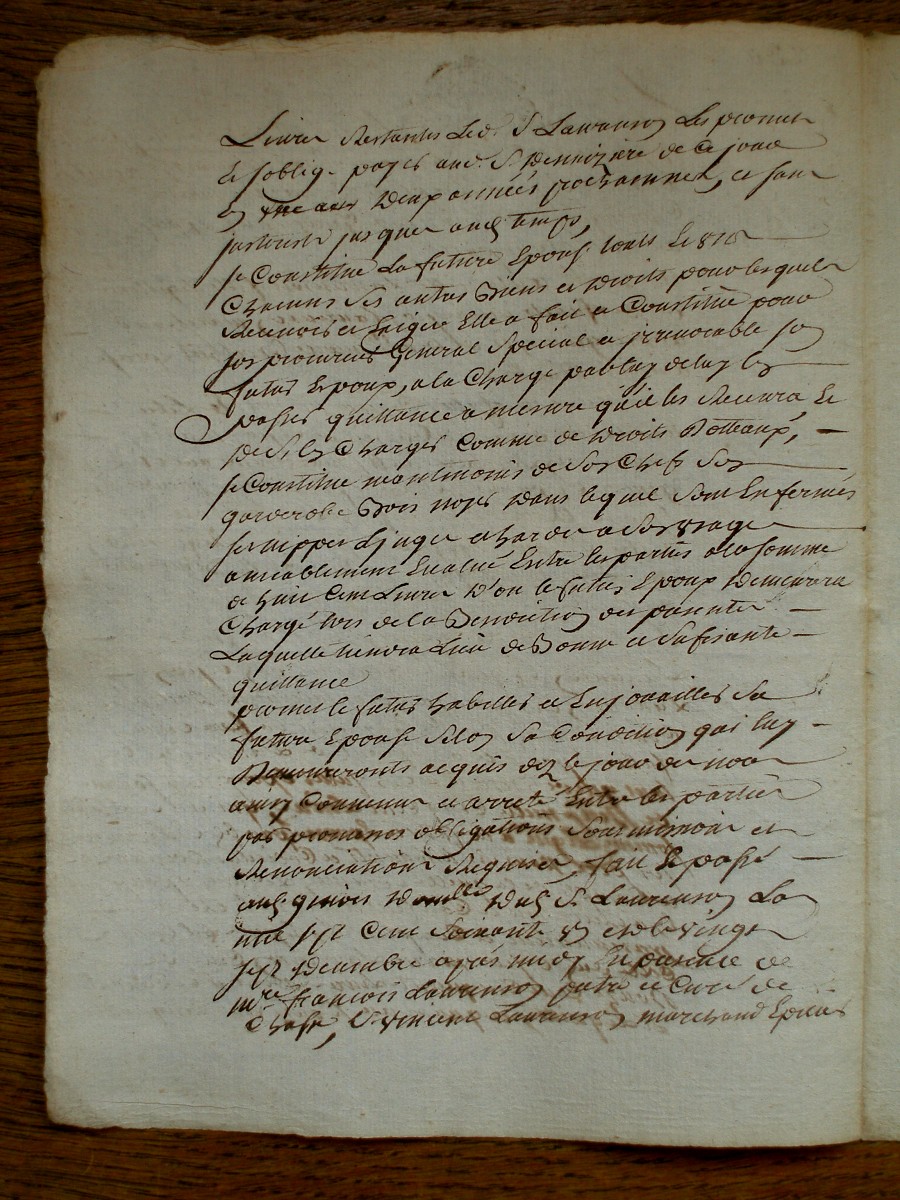 Livres Restantes Led. S. Laurenson Les promet
Et soblig. payer aud. S. de ce jour
En deux années prochaines, et sans
jusques aud. temps,
se Constitue La future Epouse touts Et un
Chacuns ses autres Biens et Droits pour lesquels
Recevoir et Exiger Elle a fait et Constitué pour
son procureur General Special et jrrevocable son
futur Epoux, a la Charge par luy de les
passer quittance a mesure qu'il les Recevra Et
de Les Charges Comme de Droits Dottaux,
se Constitue neantmoins de son Chef son
garderobe Bois noyer dans lequel sont Enfermés
ses nippes Linges et hardes a son usage
amiablement Evalué Entre les parties a la somme
de huit Cent Livres d'ou le futur Epoux demeurera
Chargé lors de la Benediction des parentes
Laquelle tiendra Lieu de Bonne et sufisante
quittance
promet le futur habiller et Enjouailler sa
future Epouse selon sa Condition qui luy
Demeureronts acquis dez le jour des nous
ainsy Convenu et arreté Entre les parties
par promesses obligations soumissions et
Renonciations Requises, fait Et passé
aud. dud. S. Laurenson La
mil sept Cent soixante un et le vingt
sept decembre après midy En presence de
mre. françois Laurenson pretre et Curé de
S. vincent Laurenson marchand Epicier